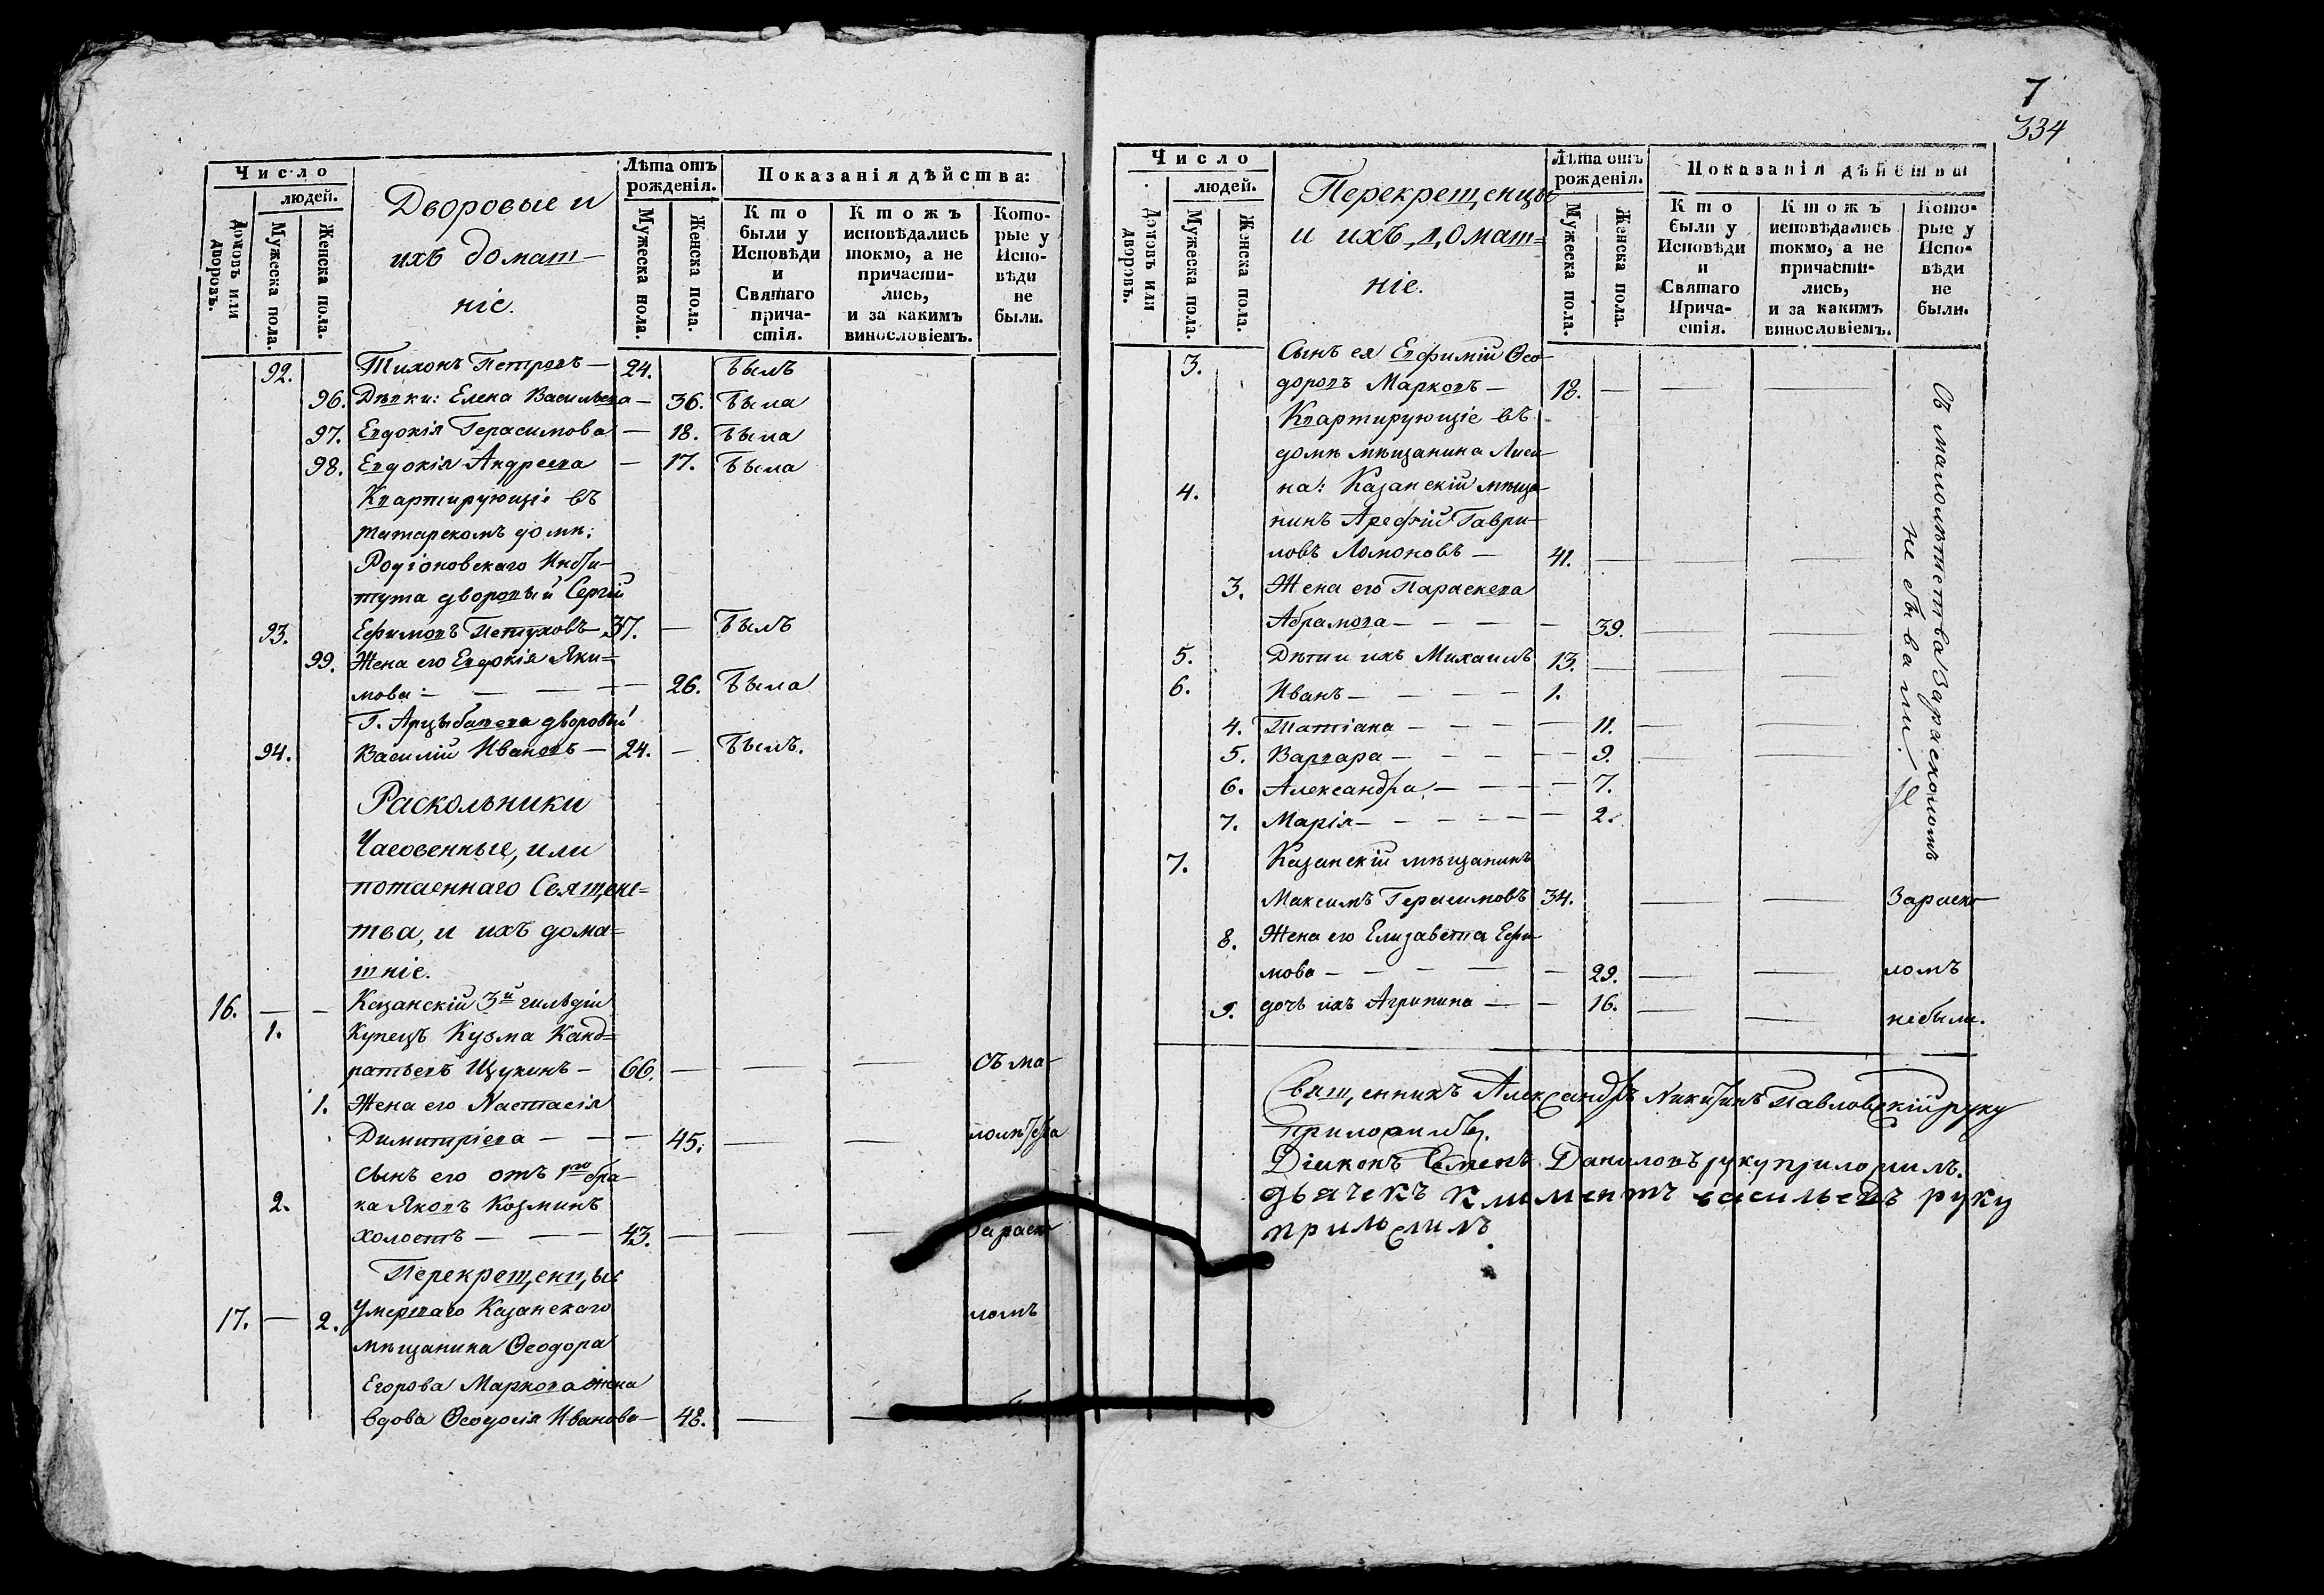 Число
людей.
Домовъ или дворовъ.
Мужеска пола.
Женска пола.
Дворовые и
ихъ домаш-
ніе.
Лѣта отъ
рожденія.
Мужеска пола.
Женска пола.
Показанія дѣйства:
Кто
были у
Исповѣди
и
Святаго
прича-
стія.
Ктожъ
исповѣдались
токмо, а не
причасти-
лись,
и за какимъ
винословіемъ.
Кото-
рые у
Испо-
вѣди
не
были.
92. Тихонъ Петровъ — 24. былъ
96. Дѣвки: Елена Васильева — 36. была
97. Евдокія Герасимова — 18. была
98. Евдокія Андреева — 17. была
Квартирующіе въ
татарскомъ домѣ:
Родіоновскаго Инсти-
тута дворовый Сергій
93. Ефимовъ Петуховъ — 37. — былъ
99. Жена его Евдокія Яки=
мова — — — — 26. была
Г. Арцыбашева дворовый
94. Василій Ивановъ — 24. — былъ.
Раскольники
Часовенные, или
потаеннаго Священс=
тва, и ихъ дома=
шніе.
16. — — Казанскій 3й гильдіи
1. Купецъ Кузма Канд=
ратьевъ Щукинъ — 66. — — — съ ма-
1. Жена его Настасія
Димитріева — — — 45. — — лолѣтства
сынъ его отъ 1го бра-
2. ка Яковъ Козминъ
холостъ — — — 43. — — — зараско
Перекрещенцы
17. — 2. Умершаго Казанскаго ломъ
мѣщанина Ѳеодора
Егорова Маркова жена
вдова Ѳеодосія Иванова — 48. — —
7
334
Число
людей.
Домовъ или дворовъ.
Мужеска пола.
Женска пола.
Перекрещенцы
и ихъ домаш=
ніе.
Лѣта отъ
рожденія.
Мужеска пола.
Женска пола.
Показанія дѣйства
Кто
были у
Исповѣди
и
Святаго
Прича-
стія.
Ктожъ
исповѣдались
токмо, а не
причасти-
лись,
и за какимъ
винословіемъ.
Кото-
рые у
Испо-
вѣди
не
были.
3. Сынъ ея Евфимій Ѳео-
доровъ Марковъ — 18. — — —
Квартирующіе въ
домѣ мѣщанина Лиси-
4. на: Казанскій мѣща-
нинъ Арефій Гаври-
ловъ Ломоновъ — 41. — — —
3. Жена его Параскева
Абрамова — — — — 39. — —
5. Дѣти ихъ Михаилъ 13. — — —
6. Иванъ — — — — 1.
4. Татіана — — — — — 11. — —
5. Варвара — — — — — 9. — —
6. Александра — — — — 7.
7. Марія — — — — — — 2.
Съ малолѣтства зарасколомъ
не бывали.
7. Казанскій мѣщанинъ
Максимъ Герасимовъ 34. — — Зараско-
8. Жена его Елизавета Ефи-
мова — — — — — 29. — — ломъ
9. дочь ихъ Агрипина — — 16. — — небыли.
Священникъ Александръ Никитинъ Павловскій руку
приложилъ.
Діаконъ Семенъ Даниловъ руку приложилъ.
дьячекъ климентъ васильевъ руку
приложилъ.